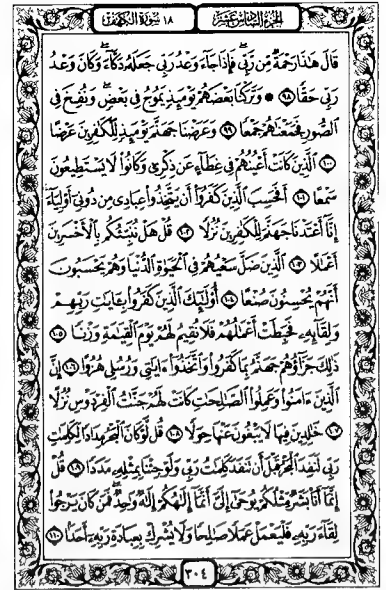 الجزء السادس عشر
١٨ سورة الكهف
قَالَ هَٰذَا رَحْمَةٌ مِّن رَّبِّي ۖ فَإِذَا جَآءَ وَعْدُ رَبِّي جَعَلَهُۥ دَكَّآءَ ۖ وَكَانَ وَعْدُ
رَبِّي حَقًّا ٩٨ ۞ وَتَرَكْنَا بَعْضَهُمْ يَوْمَئِذٍ يَمُوجُ فِي بَعْضٍ ۖ وَنُفِخَ فِي
ٱلصُّورِ فَجَمَعْنَٰهُمْ جَمْعًا ٩٩ وَعَرَضْنَا جَهَنَّمَ يَوْمَئِذٍ لِّلْكَٰفِرِينَ عَرْضًا
١٠٠ ٱلَّذِينَ كَانَتْ أَعْيُنُهُمْ فِي غِطَآءٍ عَن ذِكْرِي وَكَانُوا۟ لَا يَسْتَطِيعُونَ
سَمْعًا ١٠١ أَفَحَسِبَ ٱلَّذِينَ كَفَرُوٓا۟ أَن يَتَّخِذُوا۟ عِبَادِي مِن دُونِيٓ أَوْلِيَآءَ ۚ
إِنَّآ أَعْتَدْنَا جَهَنَّمَ لِلْكَٰفِرِينَ نُزُلًا ١٠٢ قُلْ هَلْ نُنَبِّئُكُم بِٱلْأَخْسَرِينَ
أَعْمَٰلًا ١٠٣ ٱلَّذِينَ ضَلَّ سَعْيُهُمْ فِي ٱلْحَيَوٰةِ ٱلدُّنْيَا وَهُمْ يَحْسَبُونَ
أَنَّهُمْ يُحْسِنُونَ صُنْعًا ١٠٤ أُو۟لَٰٓئِكَ ٱلَّذِينَ كَفَرُوا۟ بِـَٔايَٰتِ رَبِّهِمْ
وَلِقَآئِهِۦ فَحَبِطَتْ أَعْمَٰلُهُمْ فَلَا نُقِيمُ لَهُمْ يَوْمَ ٱلْقِيَٰمَةِ وَزْنًا ١٠٥
ذَٰلِكَ جَزَآؤُهُمْ جَهَنَّمُ بِمَا كَفَرُوا۟ وَٱتَّخَذُوٓا۟ ءَايَٰتِي وَرُسُلِي هُزُوًا ١٠٦ إِنَّ
ٱلَّذِينَ ءَامَنُوا۟ وَعَمِلُوا۟ ٱلصَّٰلِحَٰتِ كَانَتْ لَهُمْ جَنَّٰتُ ٱلْفِرْدَوْسِ نُزُلًا
١٠٧ خَٰلِدِينَ فِيهَا لَا يَبْغُونَ عَنْهَا حِوَلًا ١٠٨ قُل لَّوْ كَانَ ٱلْبَحْرُ مِدَادًا لِّكَلِمَٰتِ
رَبِّي لَنَفِدَ ٱلْبَحْرُ قَبْلَ أَن تَنفَدَ كَلِمَٰتُ رَبِّي وَلَوْ جِئْنَا بِمِثْلِهِۦ مَدَدًا ١٠٩ قُلْ
إِنَّمَآ أَنَا۠ بَشَرٌ مِّثْلُكُمْ يُوحَىٰٓ إِلَيَّ أَنَّمَآ إِلَٰهُكُمْ إِلَٰهٌ وَٰحِدٌ ۖ فَمَن كَانَ يَرْجُوا۟
لِقَآءَ رَبِّهِۦ فَلْيَعْمَلْ عَمَلًا صَٰلِحًا وَلَا يُشْرِكْ بِعِبَادَةِ رَبِّهِۦٓ أَحَدًۢا ١١٠
٣٠٤